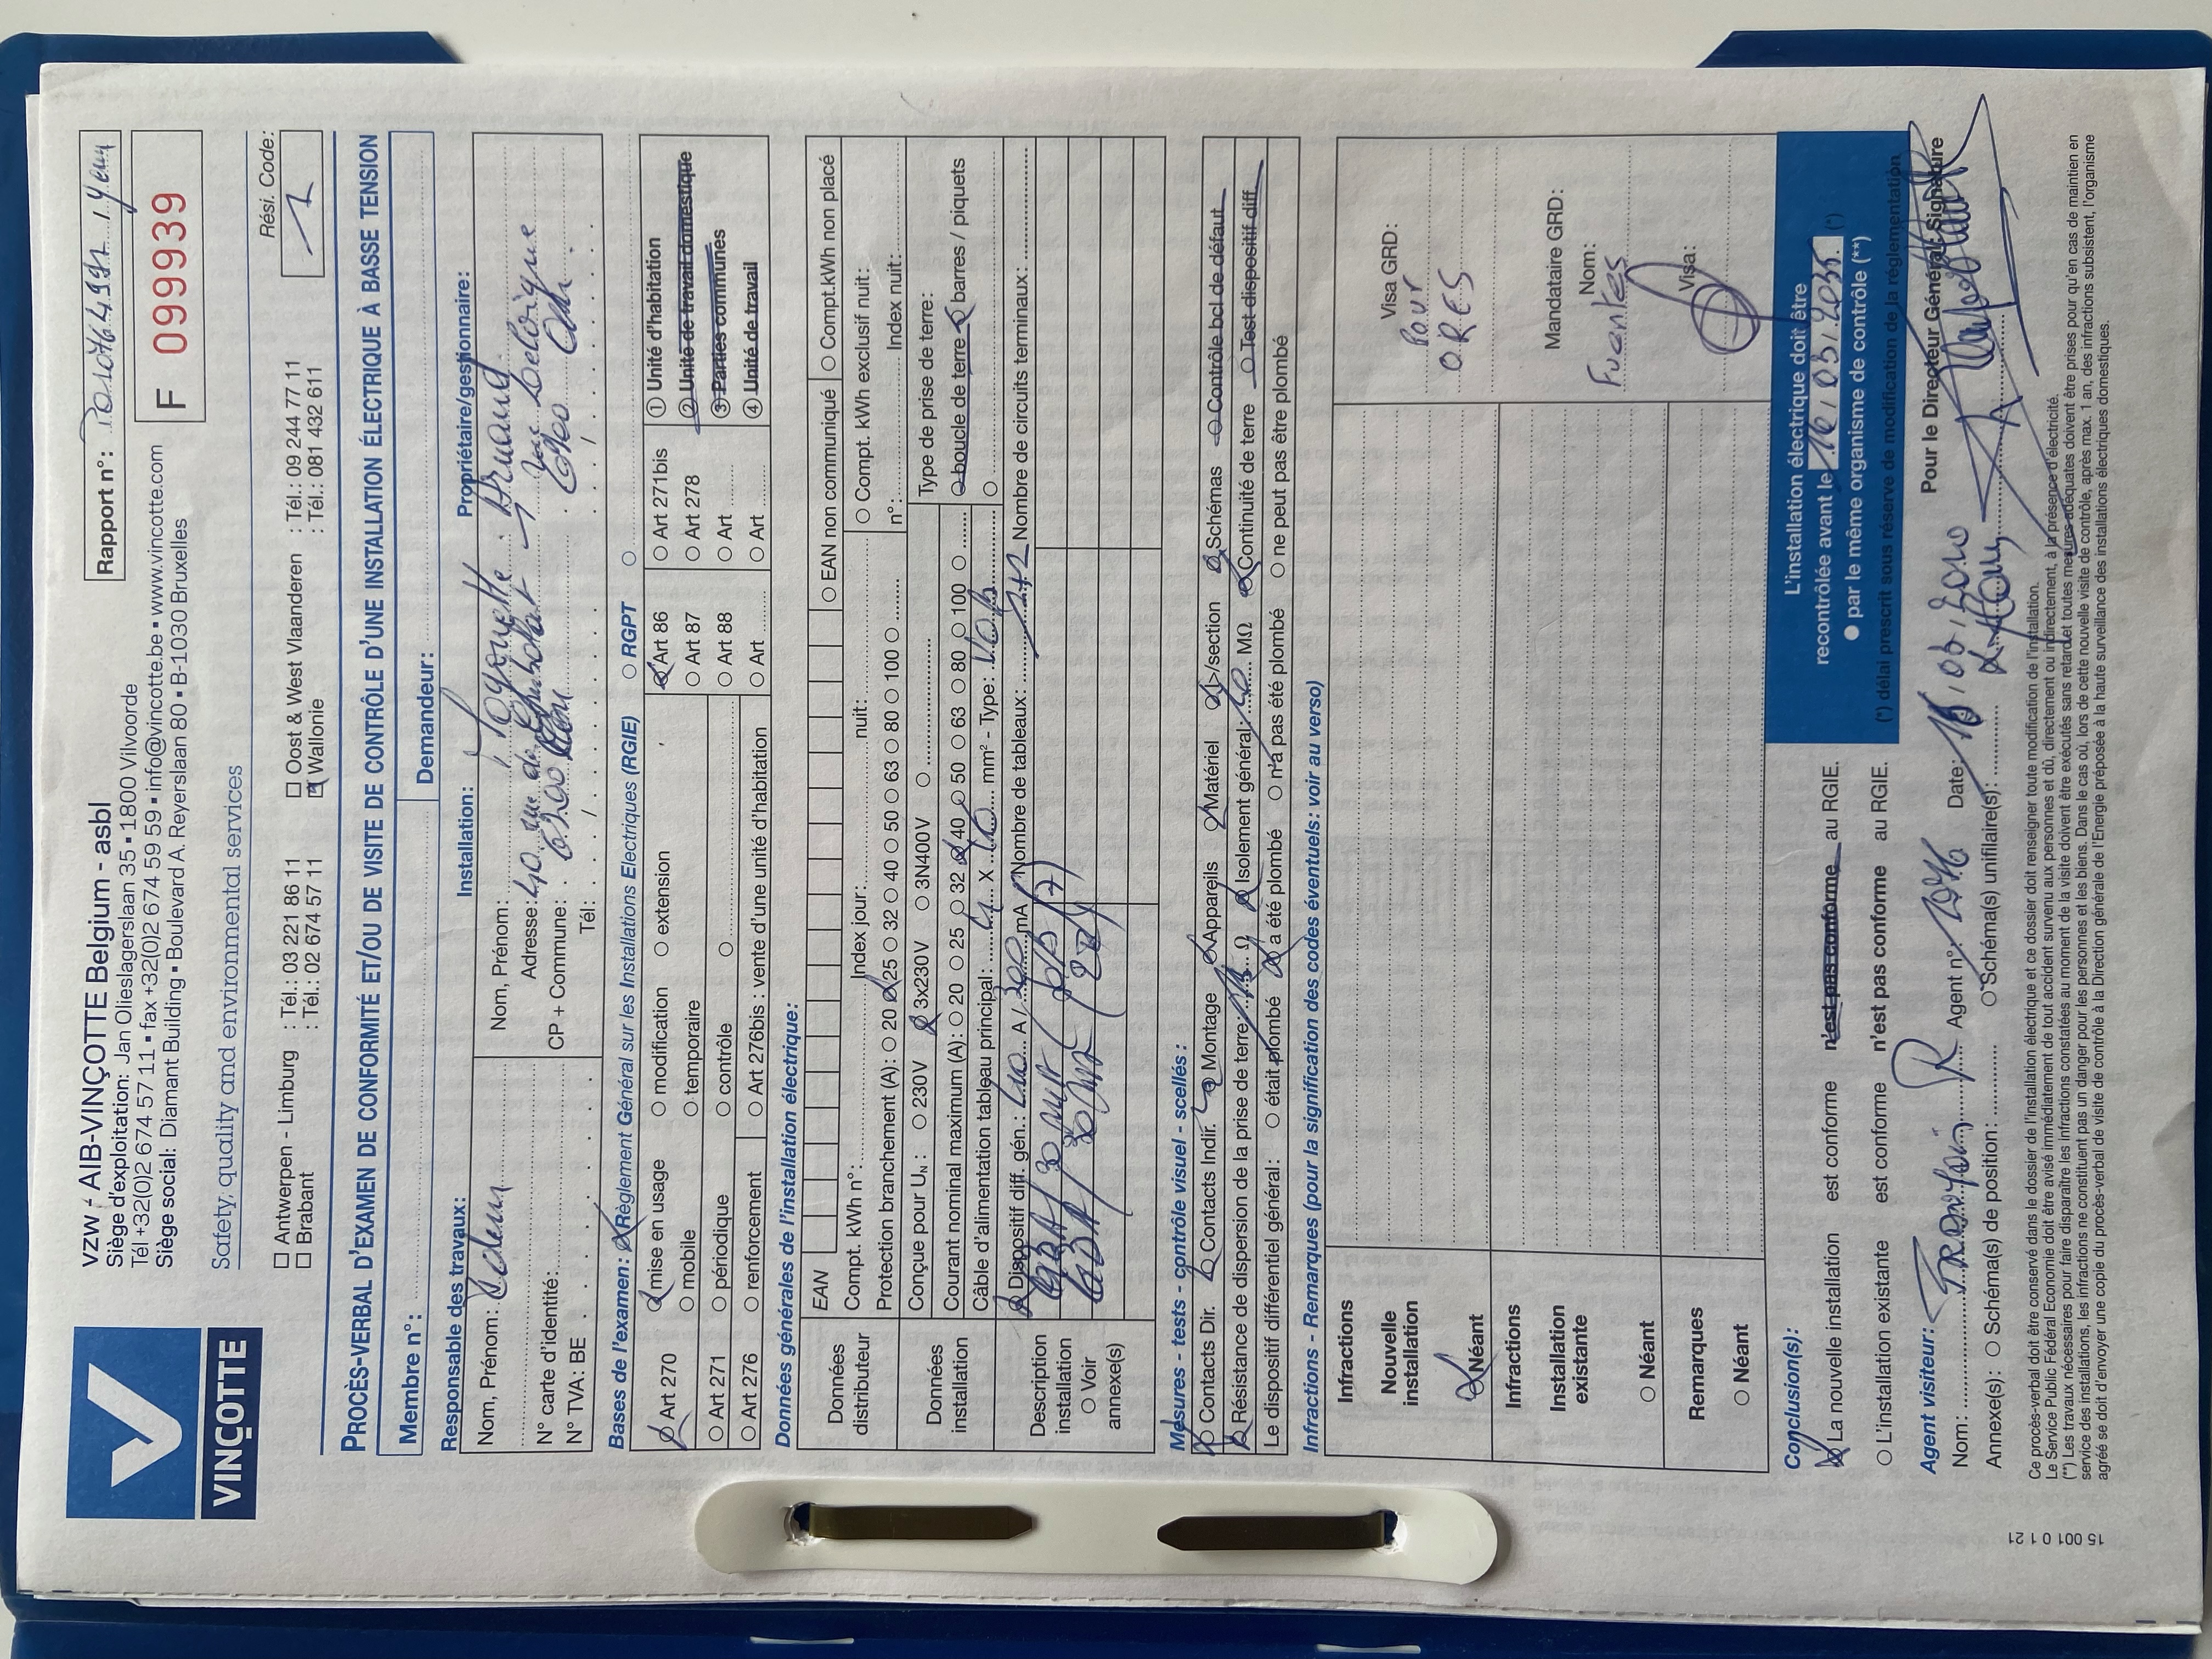 VINÇOTTE
vzw - AIB-VINÇOTTE Belgium - asbl
Siège d'exploitation: Jan Olieslagerslaan 35 • 1800 Vilvoorde
Tél +32(0)2 674 57 11 • fax +32(0)2 674 59 59 • info@vincotte.be • www.vincotte.com
Siège social: Diamant Building • Boulevard A. Reyerslaan 80 • B-1030 Bruxelles
Rapport n°:
F 099939
Safety, quality and environmental services
Rési. Code:
1
□ Antwerpen - Limburg : Tél.: 03 221 86 11 □ Oost & West Vlaanderen : Tél.: 09 244 77 11
□ Brabant : Tél.: 02 674 57 11 □ Wallonie : Tél.: 081 432 611
PROCÈS-VERBAL D'EXAMEN DE CONFORMITÉ ET/OU DE VISITE DE CONTRÔLE D'UNE INSTALLATION ÉLECTRIQUE À BASSE TENSION
Membre n°: Demandeur:
Responsable des travaux: Installation: Propriétaire/gestionnaire:
Nom, Prénom: Idem Nom, Prénom:
Adresse: 40 rue de
N° carte d'identité: CP + Commune:
N° TVA: BE Tél:
Bases de l'examen: Règlement Général sur les Installations Electriques (RGIE) ○ RGPT ○
Art 270 mise en usage ○ modification ○ extension Art 86 ○ Art 271bis ① Unité d'habitation
○ Art 271 ○ mobile ○ temporaire ○ Art 87 ○ Art 278 ② Unité de travail domestique
○ périodique ○ contrôle ○ ○ Art 88 ○ Art ③ Parties communes
○ Art 276 ○ renforcement ○ Art 276bis : vente d'une unité d'habitation ○ Art ○ Art ④ Unité de travail
Données générales de l'installation électrique:
Données distributeur
EAN ○ EAN non communiqué ○ Compt.kWh non placé
Compt. kWh n°: Index jour: nuit: ○ Compt. kWh exclusif nuit:
Protection branchement (A): ○ 20 25 ○ 32 ○ 40 ○ 50 ○ 63 ○ 80 ○ 100 ○ n°: Index nuit:
Données installation
Conçue pour UN : ○ 230V 3x230V ○ 3N400V ○ Type de prise de terre:
Courant nominal maximum (A): ○ 20 ○ 25 ○ 32 40 ○ 50 ○ 63 ○ 80 ○ 100 ○ ○ boucle de terre barres / piquets
Câble d'alimentation tableau principal: 4 X 10 mm² - Type: ○
Description installation
○ Voir annexe(s)
Dispositif diff. gén.: 40 A / 300 mA Nombre de tableaux: Nombre de circuits terminaux:
Mesures - tests - contrôle visuel - scellés :
Contacts Dir. Contacts Indir. Montage Appareils Matériel I>/section Schémas ○ Contrôle bcl de défaut
Résistance de dispersion de la prise de terre: Ω Isolement général: MΩ Continuité de terre ○ Test dispositif diff.
Le dispositif différentiel général: ○ était plombé a été plombé ○ n'a pas été plombé ○ ne peut pas être plombé
Infractions - Remarques (pour la signification des codes éventuels: voir au verso)
Infractions
Nouvelle installation
Néant
Infractions
Installation existante
○ Néant
Remarques
○ Néant
Visa GRD:
Pour
ORES
Mandataire GRD:
Nom:
Fuentes
Visa:
Conclusion(s):
La nouvelle installation est conforme n'est pas conforme au RGIE.
○ L'installation existante est conforme n'est pas conforme au RGIE.
L'installation électrique doit être
recontrôlée avant le 16.03.2035 (*)
● par le même organisme de contrôle (**)
(*) délai prescrit sous réserve de modification de la réglementation
Agent visiteur:
Pour le Directeur Général: Signature
Nom: Agent n°: Date:
Annexe(s): ○ Schéma(s) de position: ○ Schéma(s) unifilaire(s):
Ce procès-verbal doit être conservé dans le dossier de l'installation électrique et ce dossier doit renseigner toute modification de l'installation.
Le Service Public Fédéral Economie doit être avisé immédiatement de tout accident survenu aux personnes et dû, directement ou indirectement, à la présence d'électricité.
(**) Les travaux nécessaires pour faire disparaître les infractions constatées au moment de la visite doivent être exécutés sans retard et toutes mesures adéquates doivent être prises pour qu'en cas de maintien en
service des installations, les infractions ne constituent pas un danger pour les personnes et les biens. Dans le cas où, lors de cette nouvelle visite de contrôle, après max. 1 an, des infractions subsistent, l'organisme
agréé se doit d'envoyer une copie du procès-verbal de visite de contrôle à la Direction générale de l'Energie préposée à la haute surveillance des installations électriques domestiques.
15 001 0 1 21